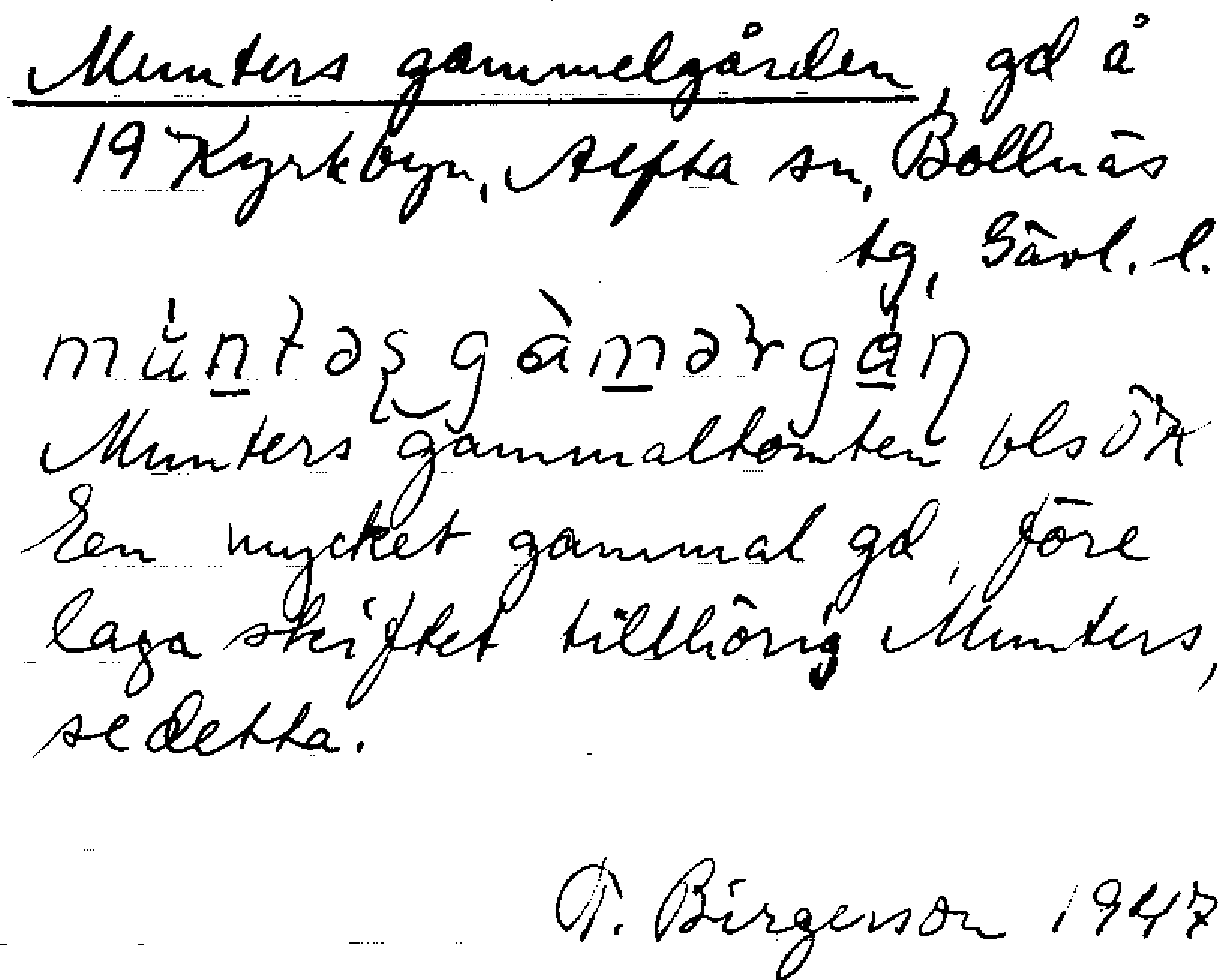 Munters gammelgården, gd å
19 Kyrkbyn, Alfta sn, Bollnäs
tg, Gävl. l.
Munters gammaltomten bls ÖK
En mycket gammal gd, före
laga skiftet tillhörig Munters,
se detta.
T. Birgerson 1947